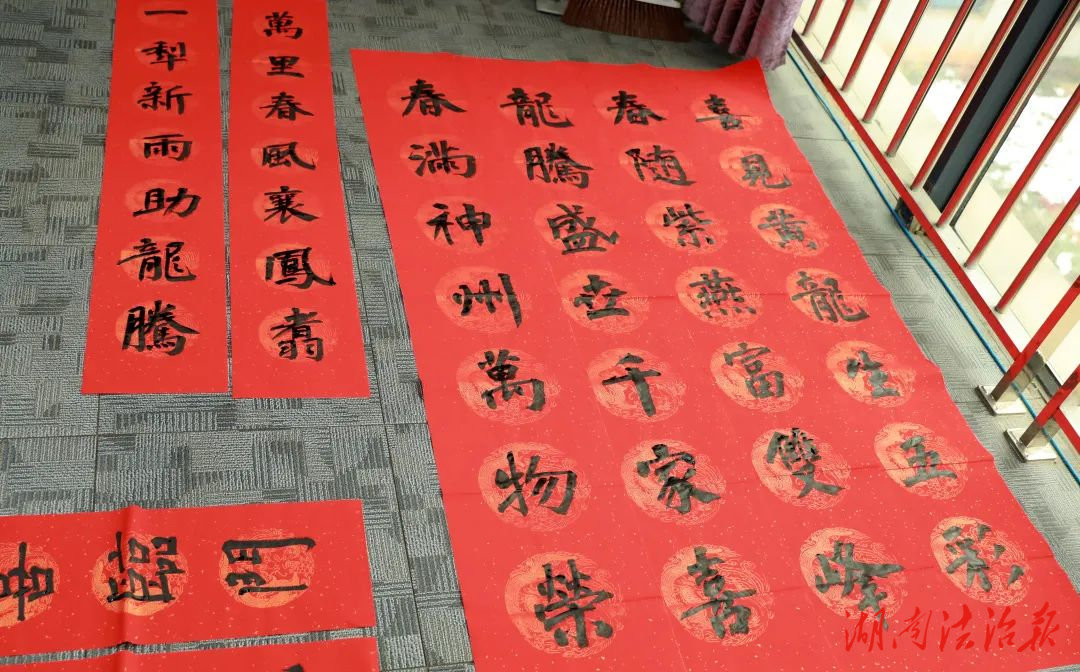 喜見黄龍生五彩
春随紫燕富雙峰
龍騰盛世千家喜
春滿神州萬物榮
萬里春風襄鳳翥
一犁新雨助龍騰
臨門
湖南法治报